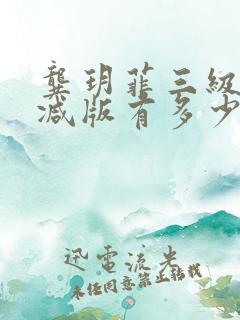 龚玥菲三级
减版有多少
迅电流光
未经同意禁止转载